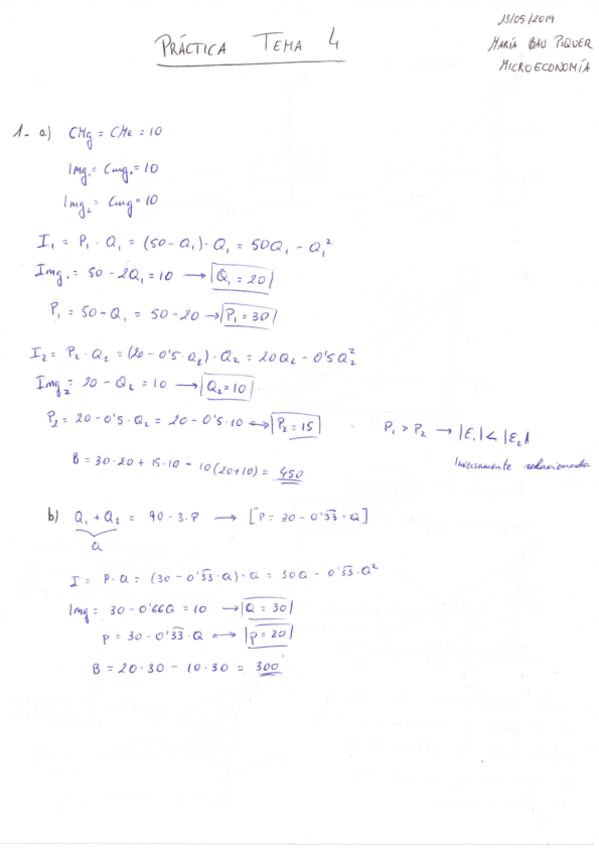 13/05/2019
PRÁCTICA TEMA 4
MARÍA BAU PIQUER
MICROECONOMÍA
1- a) CMg = CMe = 10
Img₁ = Cmg₁ = 10
Img₂ = Cmg = 10
I₁ = P₁ · Q₁ = (50 - Q₁) · Q₁ = 50Q₁ - Q₁²
Img₁ = 50 - 2Q₁ = 10 → Q₁ = 20
P₁ = 50 - Q₁ = 50 - 20 → P₁ = 30
I₂ = P₂ · Q₂ = (20 - 0'5 · Q₂) · Q₂ = 20Q₂ - 0'5Q₂²
Img₂ = 20 - Q₂ = 10 → Q₂ = 10
P₂ = 20 - 0'5 · Q₂ = 20 - 0'5 · 10 → P₂ = 15
P₁ > P₂ → |E₁| < |E₂|
Inversamente relacionada
B = 30·20 + 15·10 - 10(20+10) = 450
b) Q₁ + Q₂ = 90 - 3·P → [P = 30 - 0'33·Q]
Q
I = P·Q = (30 - 0'33·Q)·Q = 30Q - 0'33·Q²
Img = 30 - 0'66Q = 10 → Q = 30
P = 30 - 0'33·Q → P = 20
B = 20·30 - 10·30 = 300